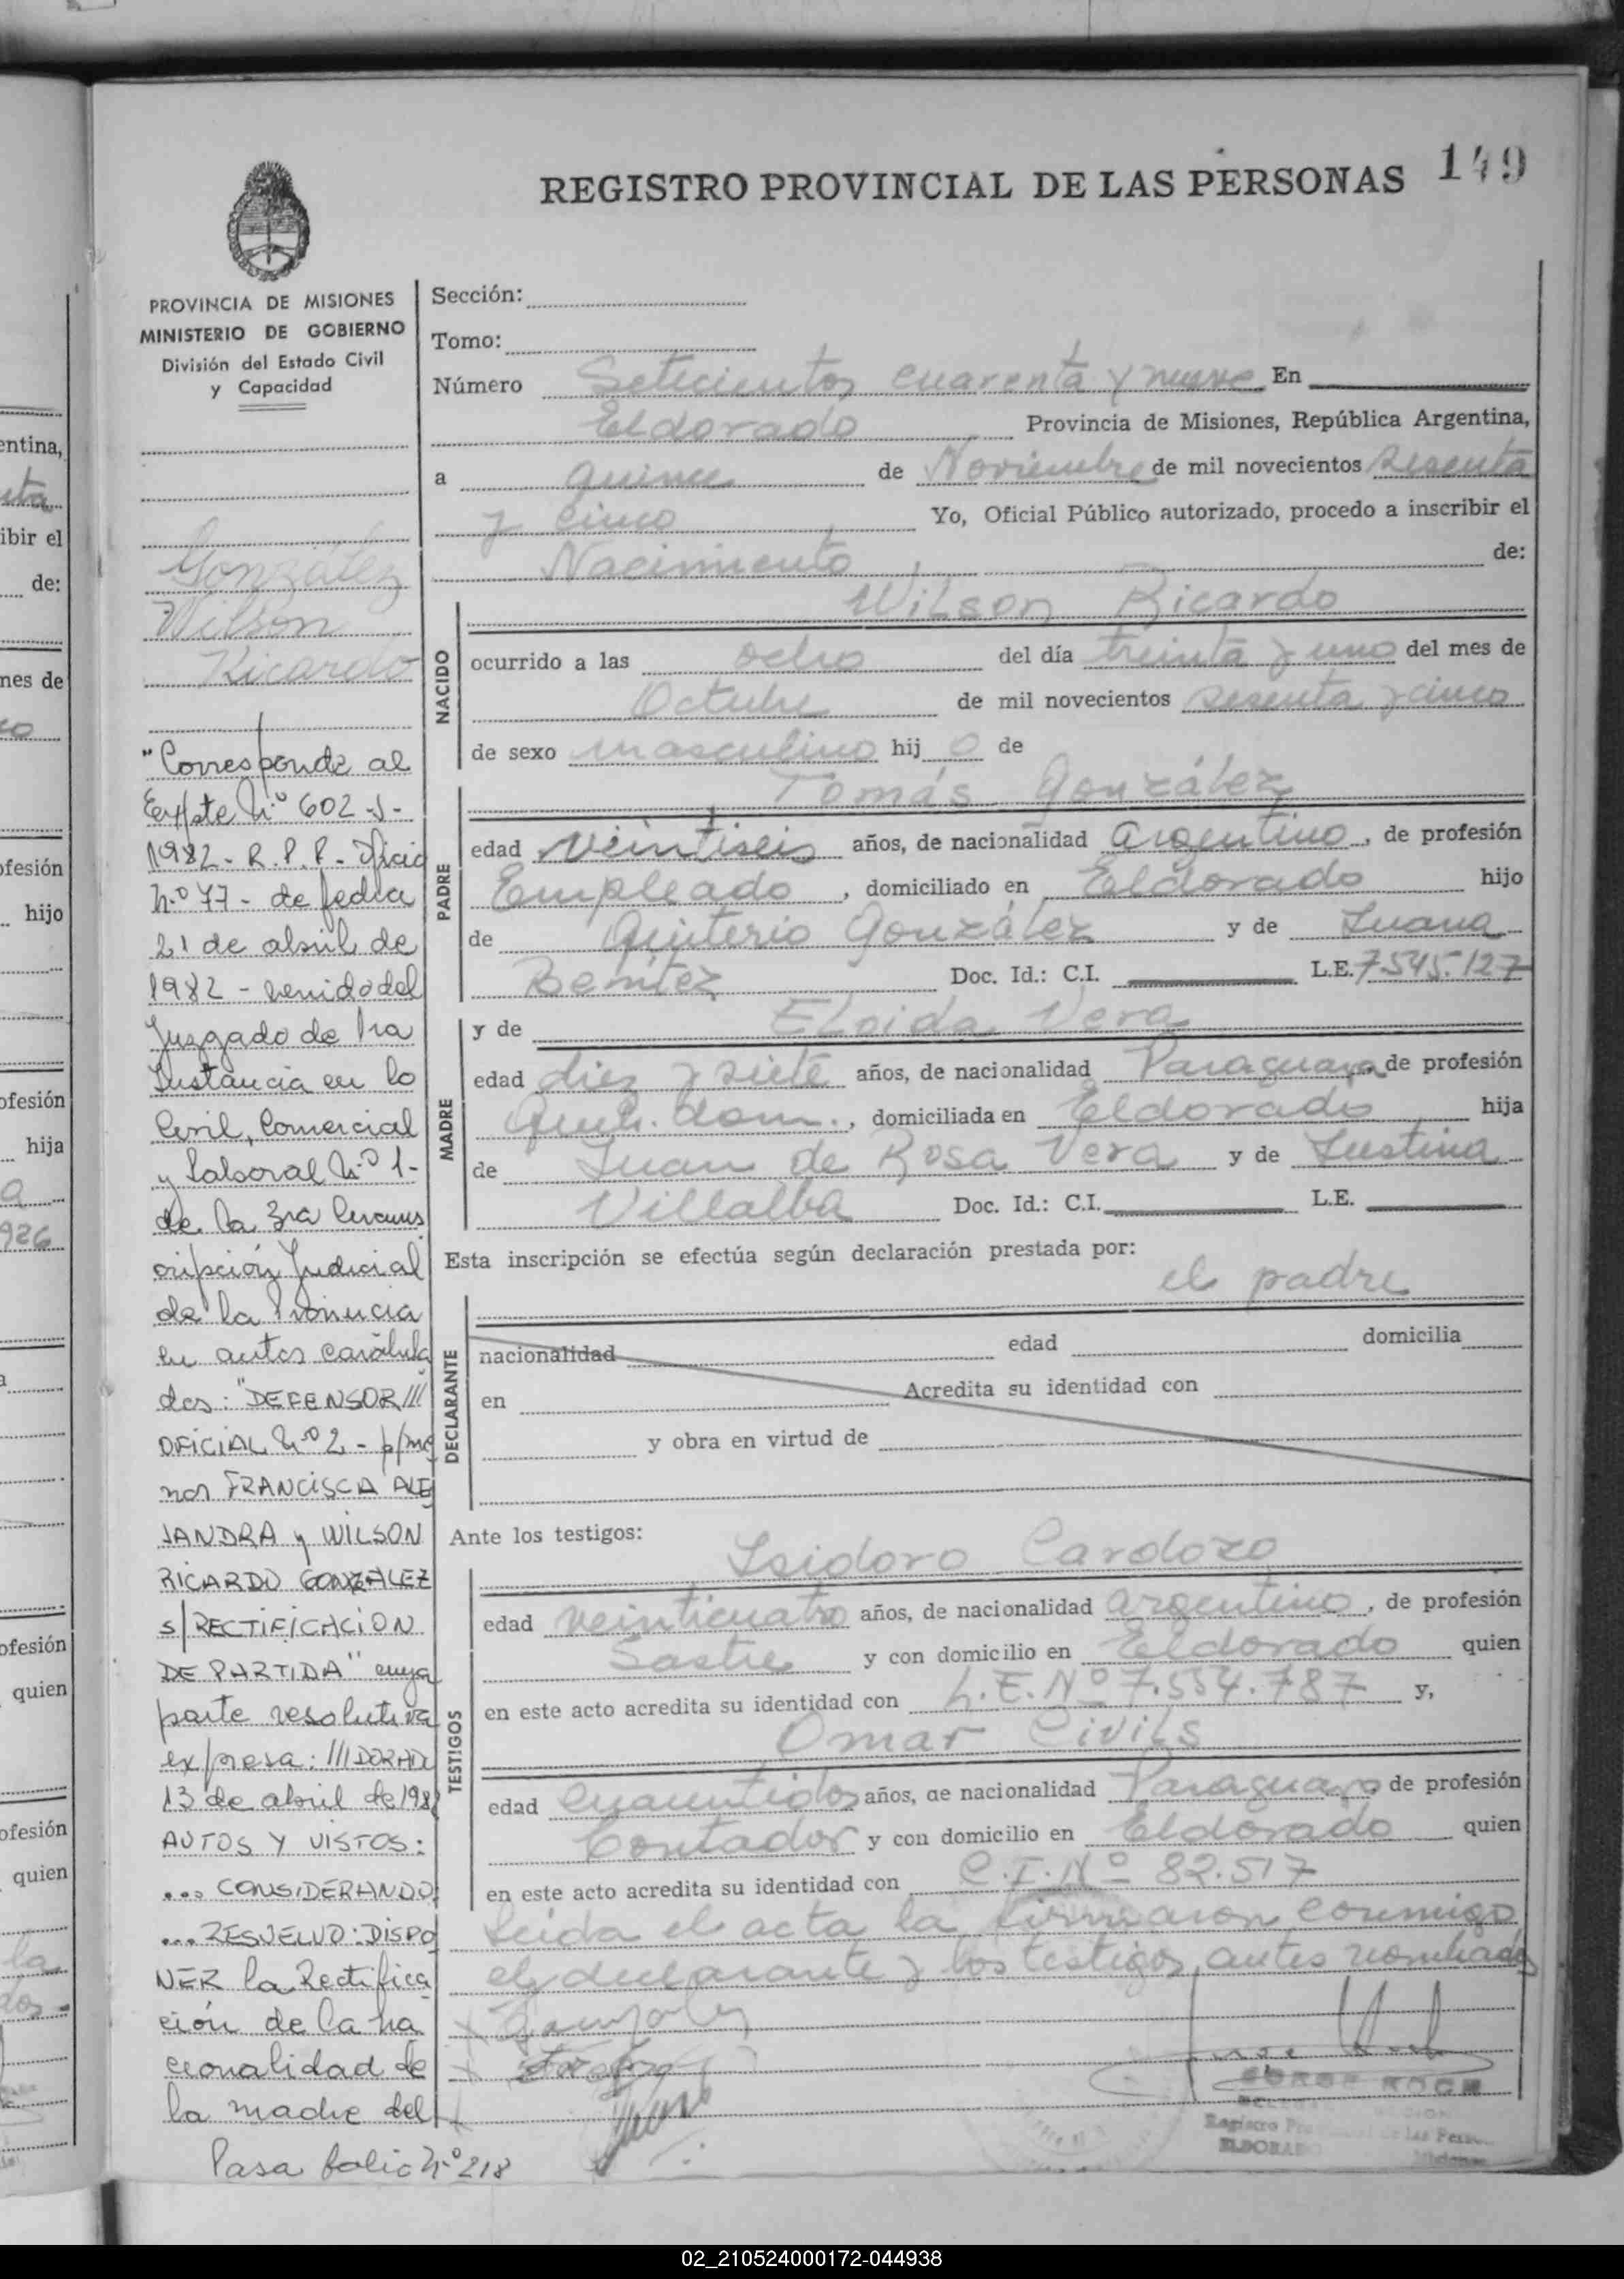 REGISTRO PROVINCIAL DE LAS PERSONAS 149
PROVINCIA DE MISIONES
MINISTERIO DE GOBIERNO
División del Estado Civil
y Capacidad
González
Wilson
Ricardo
"Corresponde al
Expte N.º 602-J-
1982 - R.P.P. - Oficio
N.º 77 - de fecha
21 de abril de
1982 - venido del
Juzgado de 1ra
Instancia en lo
Civil, Comercial
y Laboral N.º 1-
de la 3ra Circuns
cripción Judicial
de la Provincia
en autos carátula
dos: "DEFENSOR///
OFICIAL N.º 2 - p/me
nor FRANCISCA ALE
JANDRA y WILSON
RICARDO GONZALEZ
s/RECTIFICACION
DE PARTIDA" cuya
parte resolutiva
expresa: ///DORADO
13 de abril de 1982
AUTOS Y VISTOS:
... CONSIDERANDO
... RESUELVO: DISPO
NER la Rectifica
ción de la na
cionalidad de
la madre del
Pasa folio N.º 218
Sección:
Tomo:
Número Setecientos cuarenta y nueve En
Eldorado Provincia de Misiones, República Argentina,
a quince de Noviembre de mil novecientos sesenta
y cinco Yo, Oficial Público autorizado, procedo a inscribir el
Nacimiento de:
NACIDO
Wilson Ricardo
ocurrido a las ocho del día treinta y uno del mes de
Octubre de mil novecientos sesenta y cinco
de sexo masculino hij o de
PADRE
Tomás González
edad veintiseis años, de nacionalidad argentino, de profesión
Empleado, domiciliado en Eldorado hijo
de Quiterio González y de Juana
Benítez Doc. Id.: C.I. L.E. 7.545.127
MADRE
y de Eloida Vera
edad diez y siete años, de nacionalidad Paraguaya de profesión
Queh. dom., domiciliada en Eldorado hija
de Juan de Rosa Vera y de Justina
Villalba Doc. Id.: C.I. L.E.
Esta inscripción se efectúa según declaración prestada por:
el padre
DECLARANTE
nacionalidad edad domicilia
en Acredita su identidad con
y obra en virtud de
Ante los testigos:
TESTIGOS
Isidoro Cardozo
edad veinticuatro años, de nacionalidad argentino, de profesión
Sastre y con domicilio en Eldorado quien
en este acto acredita su identidad con L.E.Nº 7.554.787 y,
Omar Civils
edad cuarentidos años, de nacionalidad Paraguayo de profesión
Contador y con domicilio en Eldorado quien
en este acto acredita su identidad con C.I.Nº 82.517
Leida el acta la firmaron conmigo
el declarante y los testigos antes nombrados
JORGE KOCH
ELDORADO
02_210524000172-044938